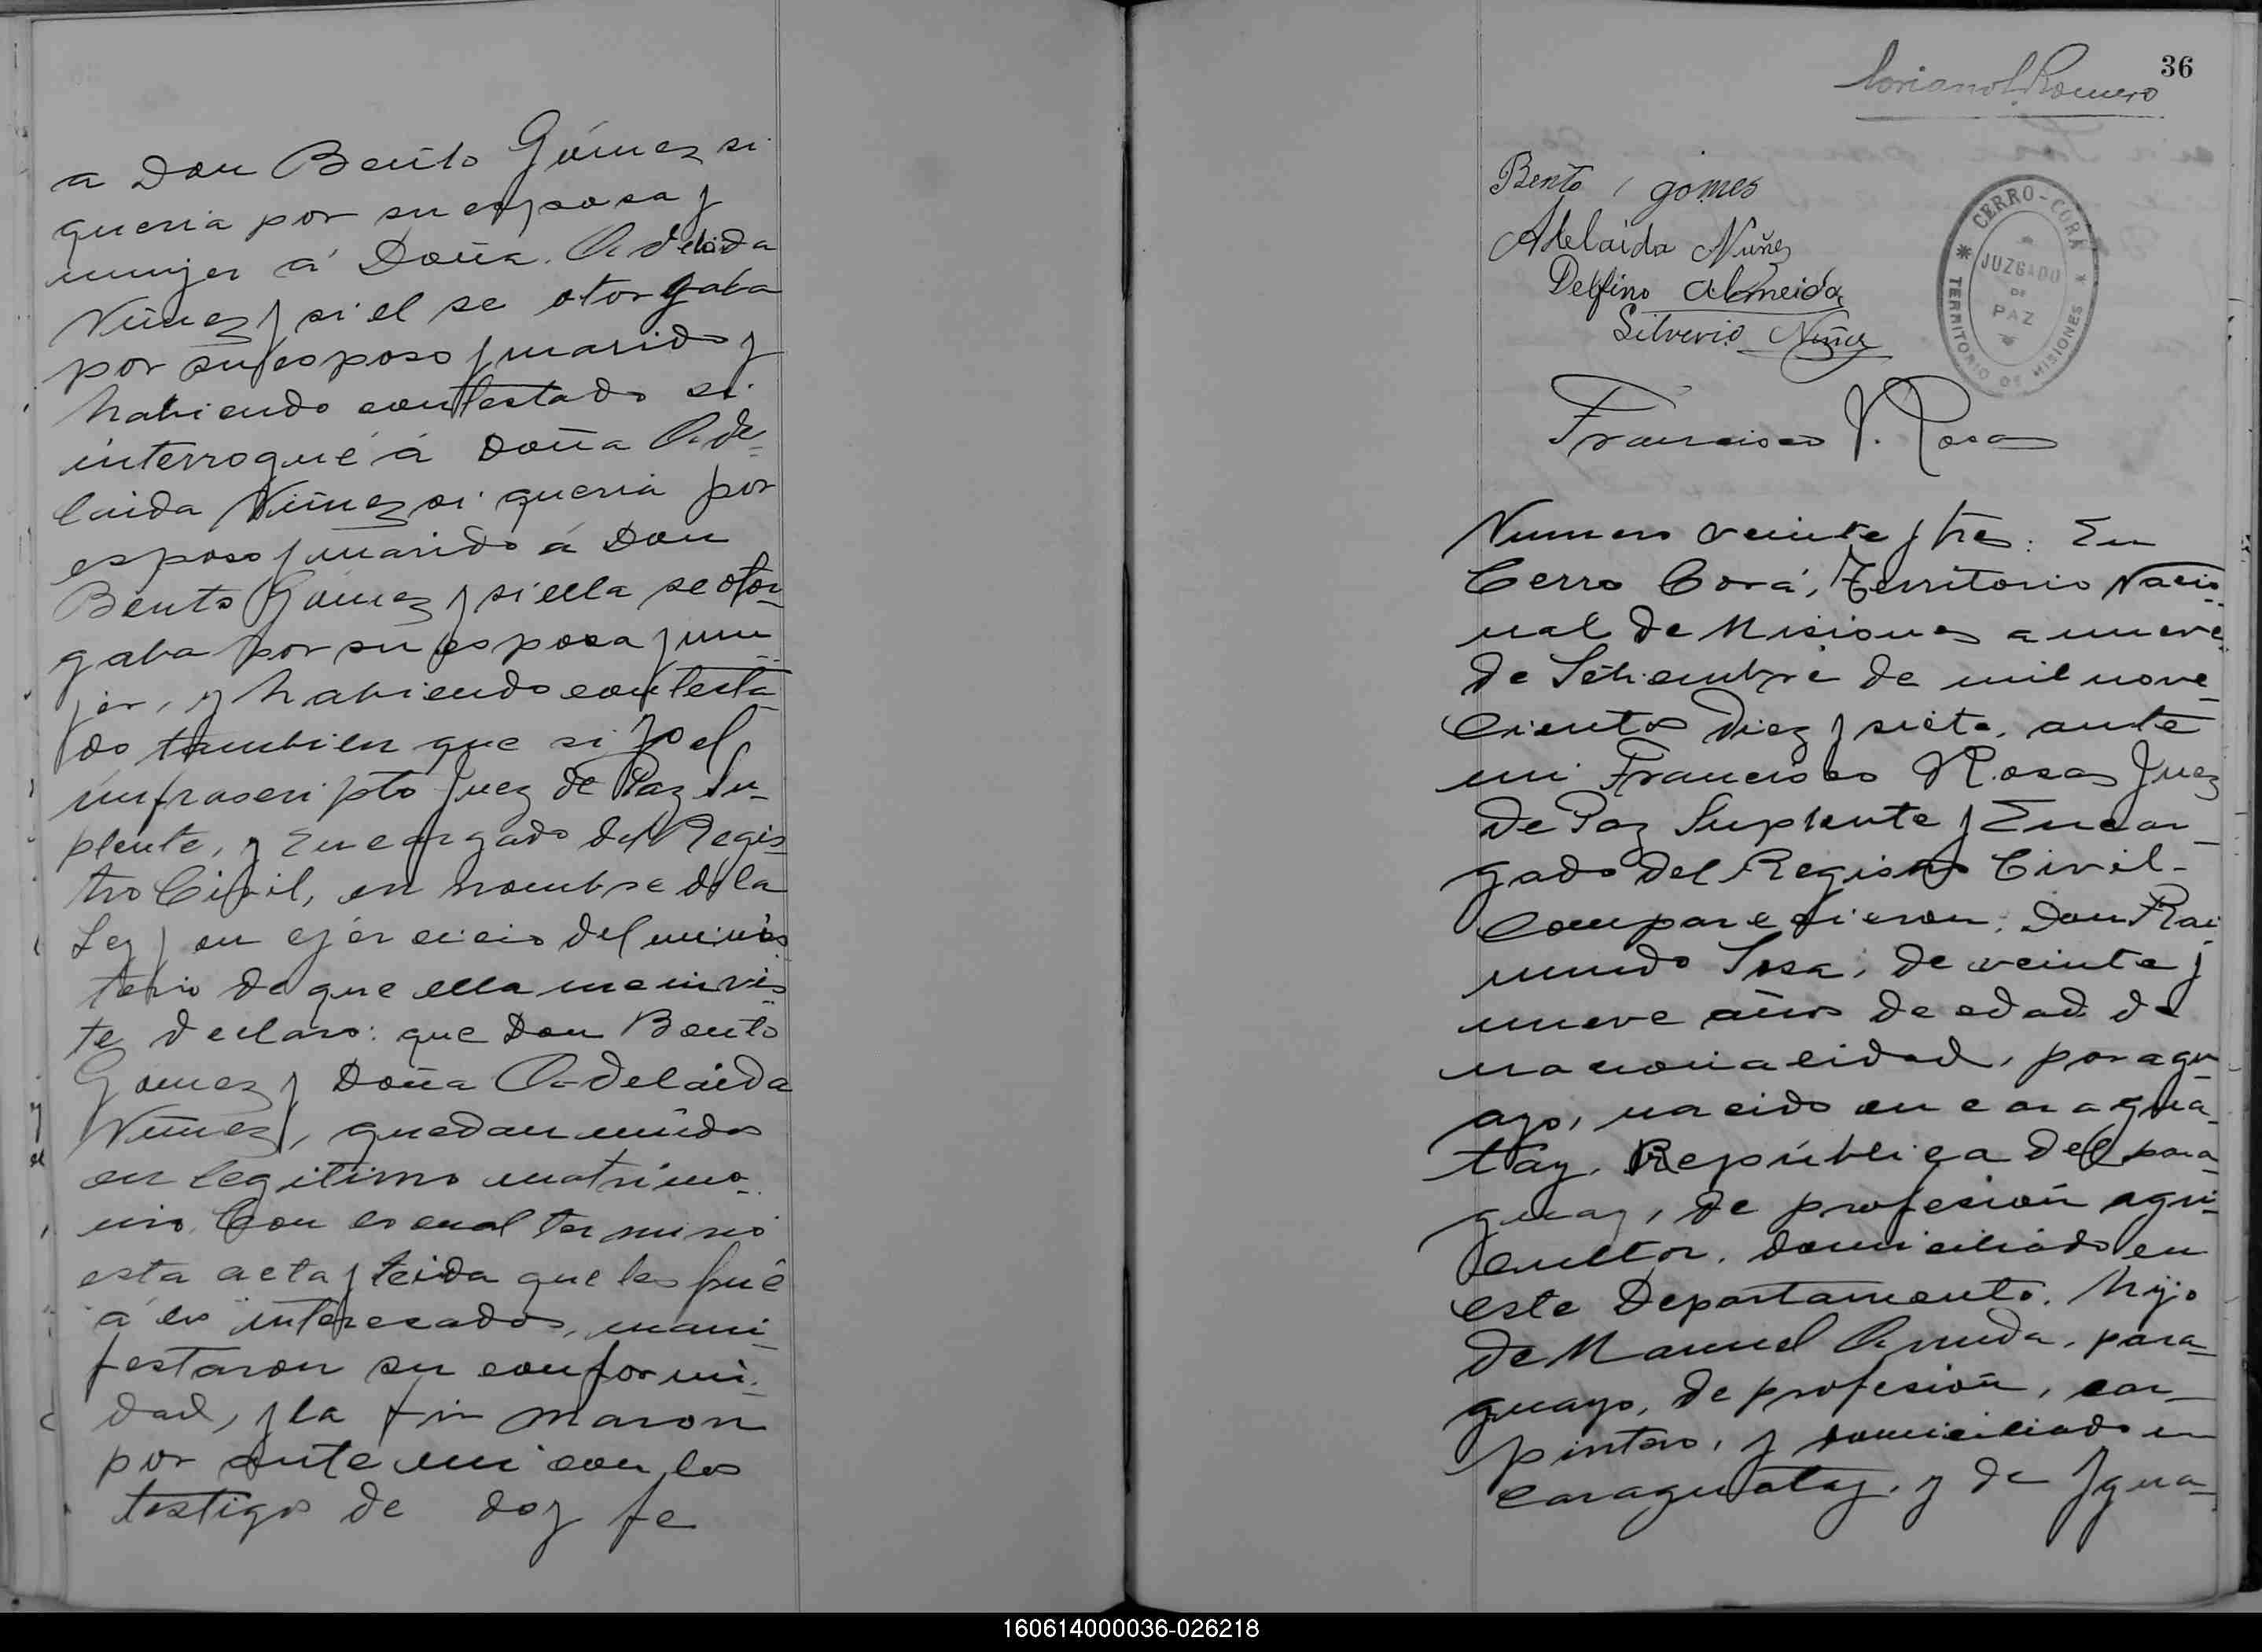 a Don Bento Gómez si
queria por su esposa y
mujer á Doña Adelaida
Nuñez y si el se otorgaba
por su esposo y marido y
habiendo contestado si
interrogué á Doña Ade=
laida Nuñez si queria por
esposo y marido á Don
Bento Gómez y si ella se otor=
gaba por su esposa y mu=
jer, y habiendo contesta=
do tambien que si yo el
infrascripto Juez de Paz Su=
plente, y Encargado del Regis=
tro Civil, en nombre de la
Ley y en ejercicio del minis=
terio de que ella me invis=
te declaro: que Don Bento
Gómez y Doña Adelaida
Nuñez, quedan unidos
en legitimo matrimo=
nio. Con lo cual terminó
esta acta y leida que les fué
á los interesados, mani=
festaron su conformi=
dad, y la firmaron
por ante mi con los
testigos de doy fe
36
Romero
Bento gomes
Adelaida Nuñez
Delfino Almeida
Silverio Nuñez
CERRO-CORÁ
JUZGADO
DE
PAZ
TERRITORIO DE MISIONES
Francisco V. Rosas
Numero veinte y tres: En
Cerro Corá, Territorio Nacio=
nal de Misiones a nueve
de Setiembre de mil nove=
cientos diez y siete, ante
mi Francisco V Rosas Juez
de Paz Suplente y Encar=
gado del Registro Civil-
comparecieron; Don Rai
mundo Sosa, de veinte y
nueve años de edad de
nacionalidad, paragu=
ayo, nacido en caragua=
tay, República del para=
guay, de profesión agri=
cultor, domiciliado en
este Departamento. hijo
de Manuel, para=
guayo, de profesión, car=
pintero, y domiciliado en
caraguatay, y de Ygna=
160614000036-026218